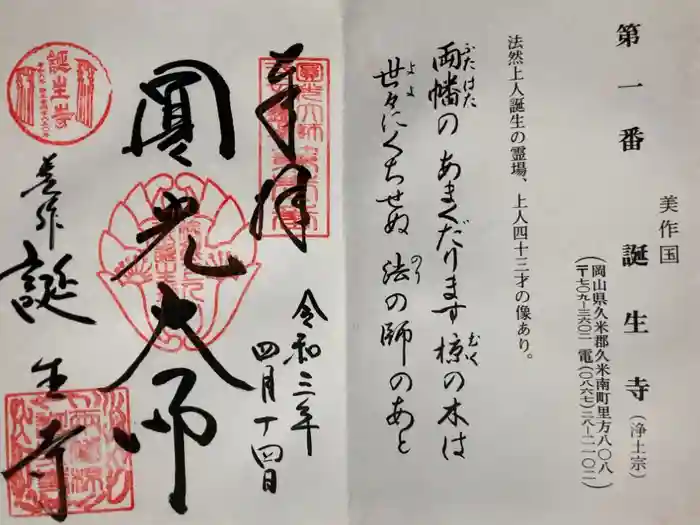 第一番
美作国
誕生寺(浄土宗)
岡山県久米郡久米南町里方八〇八
(〒七〇九―三六〇二 電(〇八六七)二八―二一〇二)
法然上人誕生の霊場、上人四十三才の像あり。
両幡の あまくだります 椋の木は
ふたはた むく
世々にくちせぬ 法の師のあと
よよ のり
奉拝
令和三年
四月十四日
圓光大師
美作
誕生寺
誕生寺